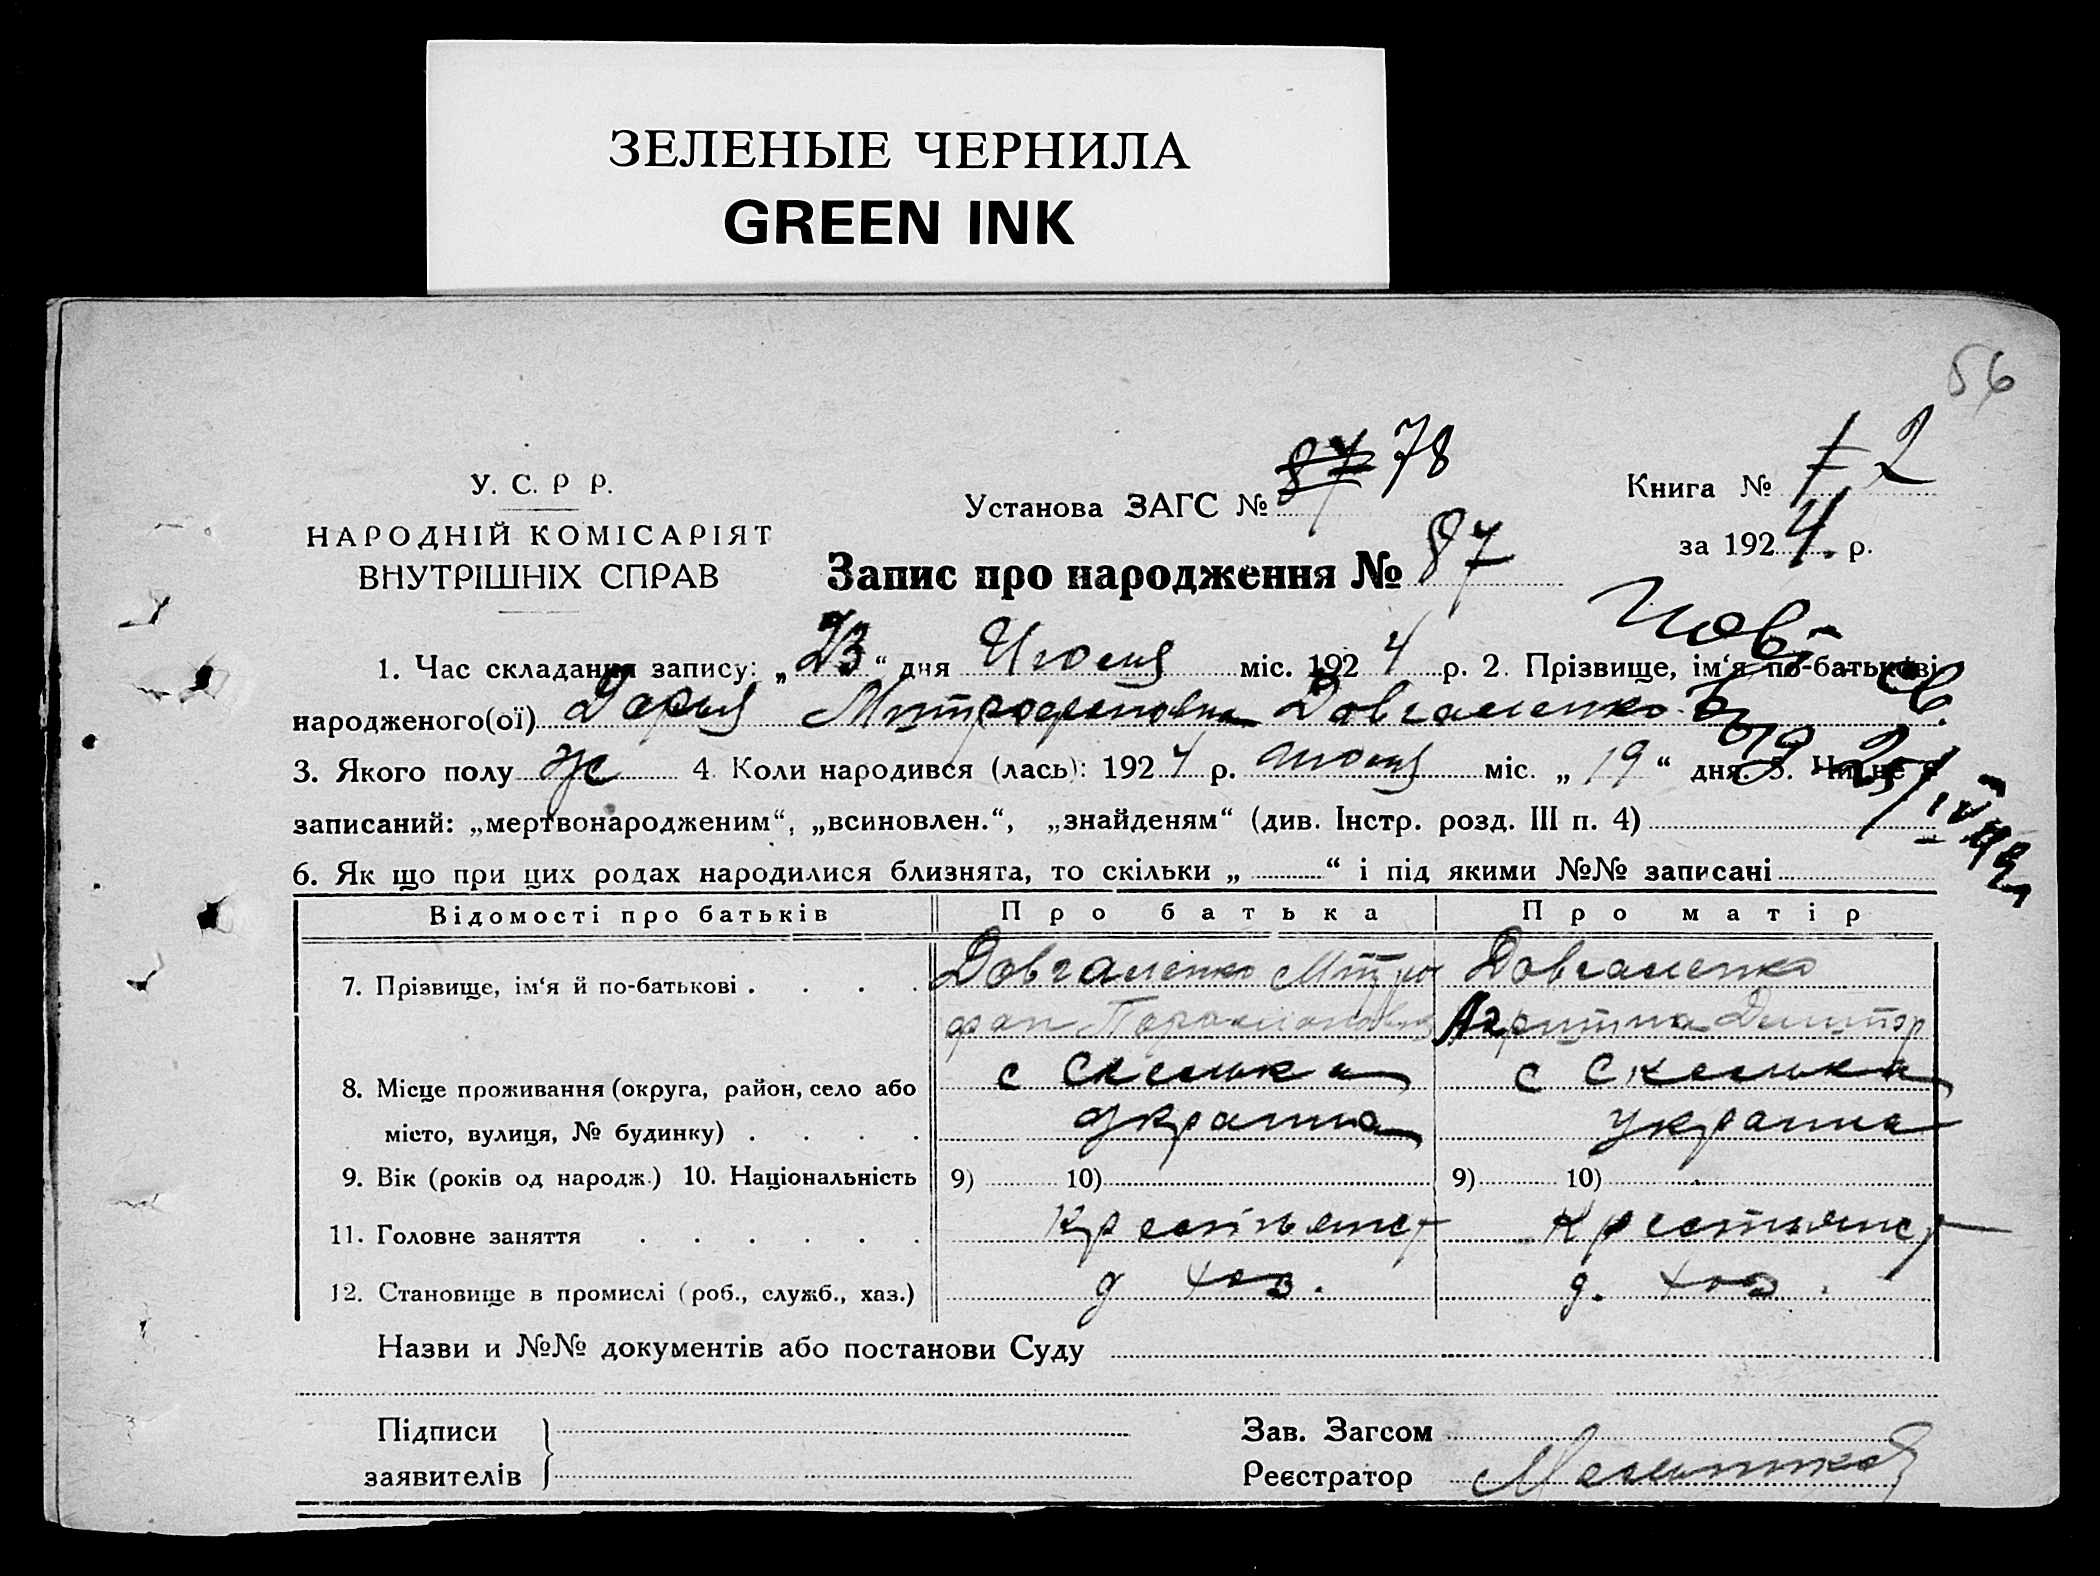 ЗЕЛЕНЫЕ ЧЕРНИЛА
GREEN INK
56
У. С. Р Р.
НАРОДНІЙ КОМІСАРІЯТ
ВНУТРІШНІХ СПРАВ
Установа ЗАГС № 87 78
Книга № 1 2
за 1924 р.
Запис про народження № 87
1. Час складання запису: „23“ дня Июня міс. 1924 р. 2. Прізвище, ім‘я по-батькові
народженого(ої) Дарья Митрофановна Довгаленко
3. Якого полу ж 4. Коли народився (лась): 1924 р. июня міс. „19“ дня. 5. Чи не є
записаний: „мертвонародженим“, „всиновлен.“, „знайденям“ (див. Інстр. розд. III п. 4)
6. Як що при цих родах народилися близнята, то скільки „ “ і під якими №№ записані
Відомості про батьків Про батька Про матір
7. Прізвище, ім‘я й по-батькові . . . . Довгаленко Митро Довгаленко
фан Агрипина Дмитор
8. Місце проживання (округа, район, село або с Скельки с Скельки
місто, вулиця, № будинку) . . . . украина украина
9. Вік (років од народж.) 10. Національність 9) 10) 9) 10)
11. Головне заняття . . . . . . Крестьянст Крестьянст
12. Становище в промислі (роб., служб., хаз.) д хоз. д. хоз.
Назви и №№ документів або постанови Суду
Підписи
заявителів
Зав. Загсом
Реєстратор